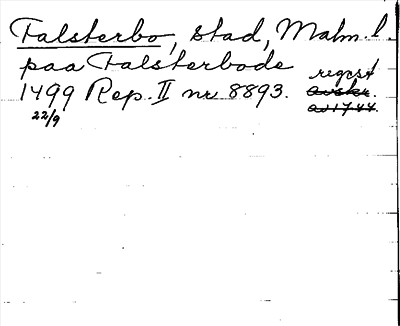 Falsterbo, stad, Malm. l.
paa Falsterbode
1499 Rep. II nr 8893. regest
22/9 avskr.
av 1744.